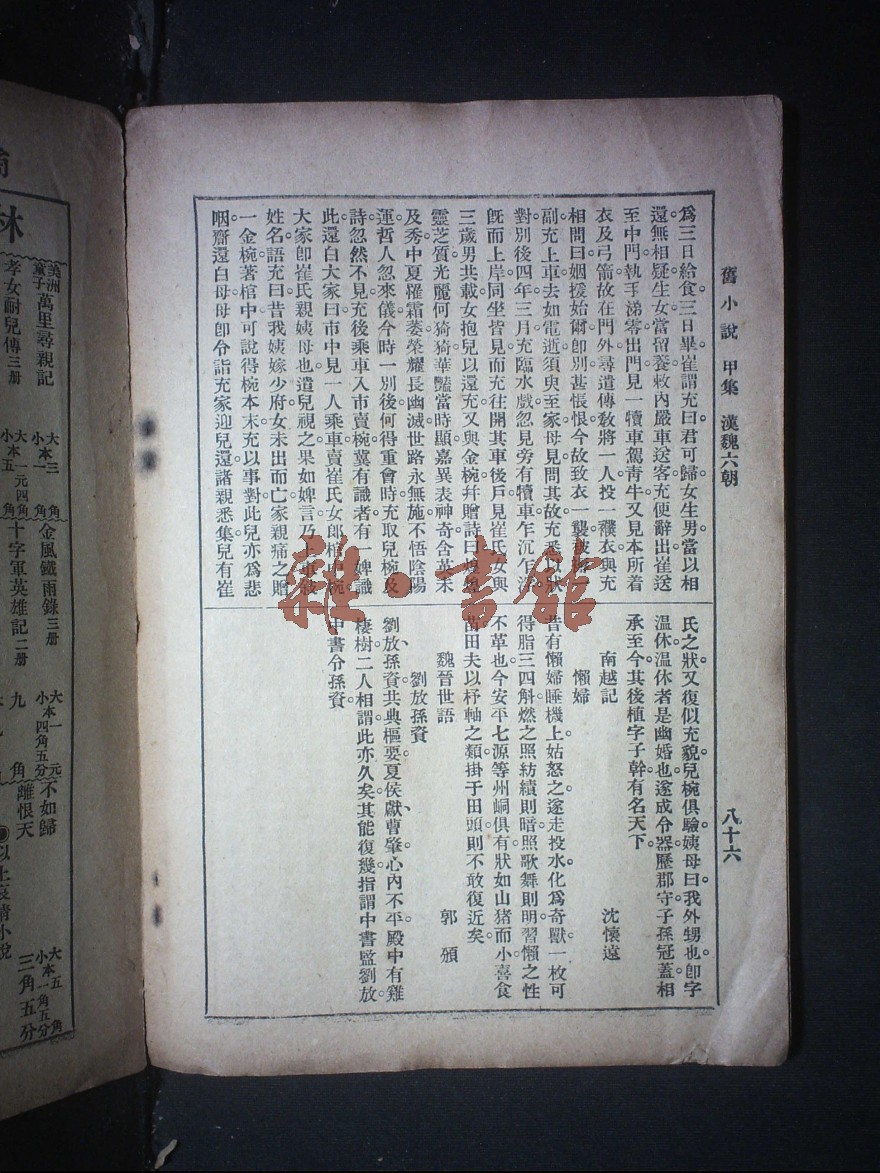 舊小說 甲集 漢魏六朝
八十六
爲三日給食三日畢崔謂充曰君可歸女生男當以相
還無相疑生女當留養敕內嚴車送客充便辭出崔送
至中門執手涕零出門見一犢車駕靑牛又見本所着
衣及弓箭故在門外尋遣傳敎將一人投一襆衣與充
相問曰姻援始爾別甚悵恨今故致衣一襲被褥
副充上車去如電逝須臾至家母見問其故充悉以狀
對別後四年三月充臨水戲忽見旁有犢車乍沉乍浮
旣而上岸同坐皆見而充往開其車後戶見崔氏女與
三歲男共載女抱兒以還充又與金椀幷贈詩曰煌煌
靈芝質光麗何猗猗華豔當時顯嘉異表神奇含英未
及秀中夏罹霜萎榮耀長幽滅世路永無施不悟陰陽
運哲人忽來儀今時一別後何得重會時充取兒椀及
詩忽然不見充後乘車入市賣椀冀有識者有一婢識
此還白大家曰市中見一人乘車賣崔氏女郎棺中椀
大家卽崔氏親姨母也遣兒視之果如婢言乃上車敘
姓名語充曰昔我姨嫁少府女未出而亡家親痛之贈
一金椀著棺中可說得椀本末充以事對此兒亦爲悲
咽齋還白母母卽令詣充家迎兒還諸親悉集兒有崔
氏之狀又復似充貌兒椀俱驗姨母曰我外甥也卽字
温休温休者是幽婚也遂成令器歷郡守子孫冠蓋相
承至今其後植字子幹有名天下
南越記 沈懷遠
懶婦
昔有懶婦睡機上姑怒之遂走投水化爲奇獸一枚可
得脂三四斛燃之照紡績則暗照歌舞則明習懶之性
不革也今安平七源等州峒俱有狀如山猪而小喜食
苗田夫以杼軸之類掛于田頭則不敢復近矣
魏晉世語 郭頒
劉放孫資
劉放孫資共典樞要夏侯獻曹肇心內不平殿中有雞
棲樹二人相謂此亦久矣其能復幾指謂中書監劉放
中書令孫資
林
美洲童子萬里尋親記
大本三角
小本一角
孝女耐兒傳三册
大本一元四角
小本五角
金風鐵雨錄三册
大本一元
小本四角五分
十字軍英雄記二册
九角
不如歸
大本五角
小本一角五分
離恨天
三角五分
以上哀情小說
雜·書館